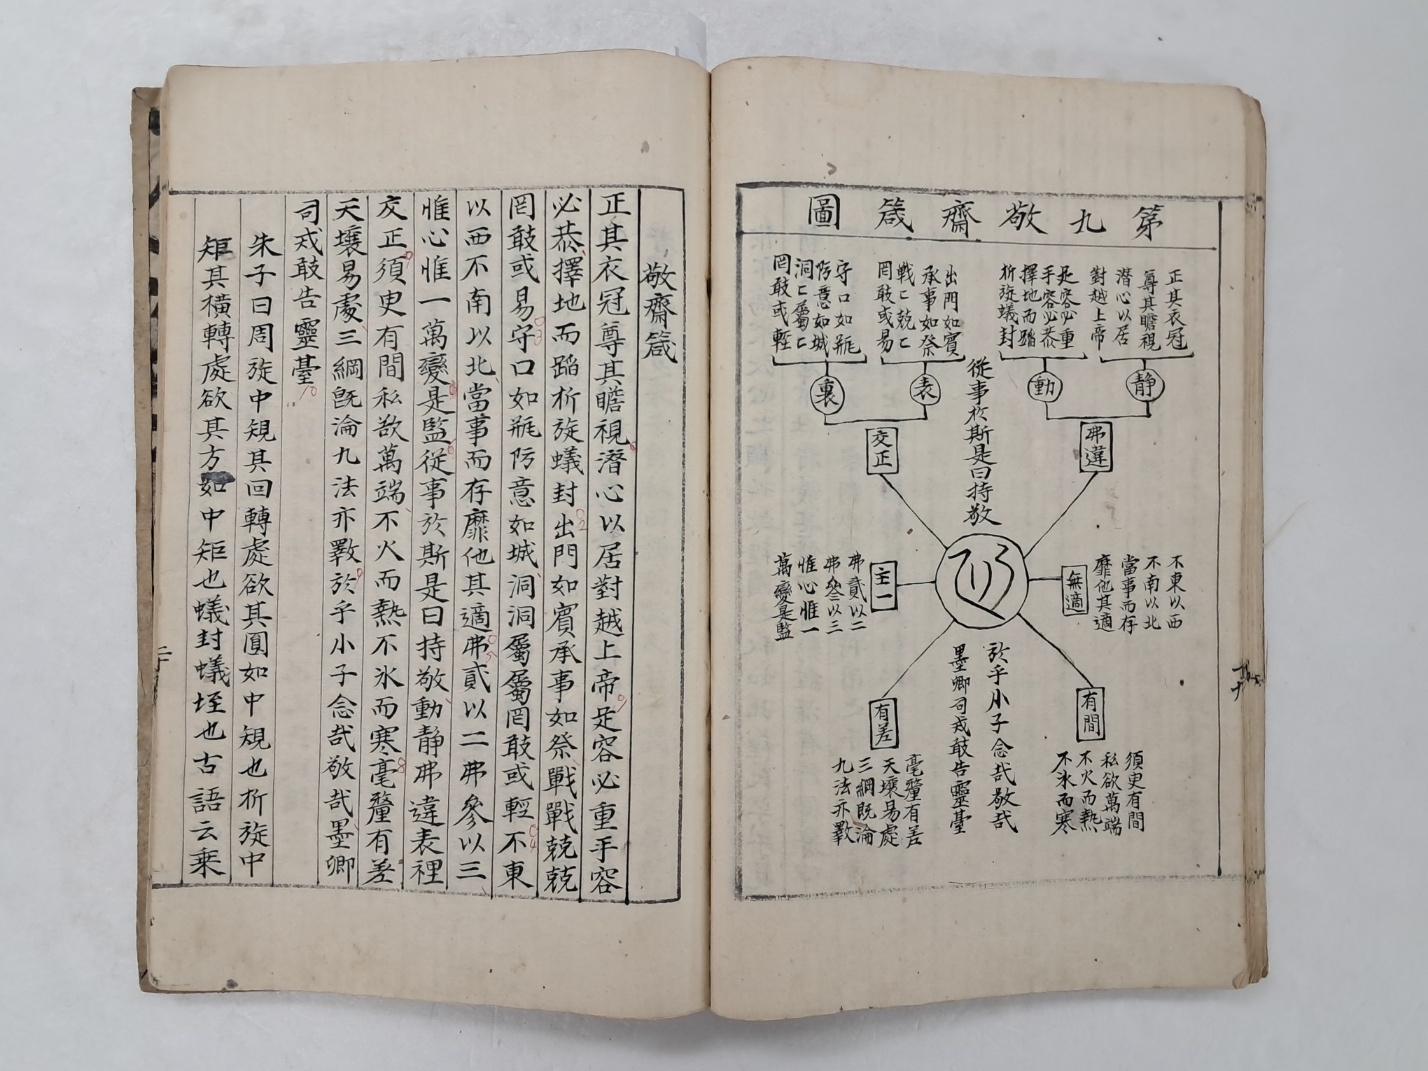 第九敬齋箴圖
正其衣冠
尊其瞻視
潛心以居
對越上帝
靜
足容必重
手容必恭
擇地而蹈
折旋蟻封
動
弗違
出門如賓
承事如祭
戰〻兢〻
罔敢或易
表
守口如甁
防意如城
洞〻屬〻
罔敢或輕
裏
交正
從事於斯是曰持敬
心
不東以西
不南以北
當事而存
靡他其適
無適
弗貳以二
弗參以三
惟心惟一
萬變是監
主一
須臾有間
私欲萬端
不火而熱
不氷而寒
有間
毫釐有差
天壤易處
三綱既淪
九法亦斁
有差
於乎小子念哉敬哉
墨卿司戒敢告靈臺
敬齋箴
正其衣冠尊其瞻視潛心以居對越上帝足容必重手容
必恭擇地而蹈折旋蟻封出門如賓承事如祭戰戰兢兢
罔敢或易守口如甁防意如城洞洞屬屬罔敢或輕不東
以西不南以北當事而存靡他其適弗貳以二弗參以三
惟心惟一萬變是監從事於斯是曰持敬動靜弗違表裡
交正須臾有間私欲萬端不火而熱不氷而寒毫釐有差
天壤易處三綱旣淪九法亦斁於乎小子念哉敬哉墨卿
司戒敢告靈臺
朱子曰周旋中規其回轉處欲其圓如中規也折旋中
矩其橫轉處欲其方如中矩也蟻封蟻垤也古語云乘
二十